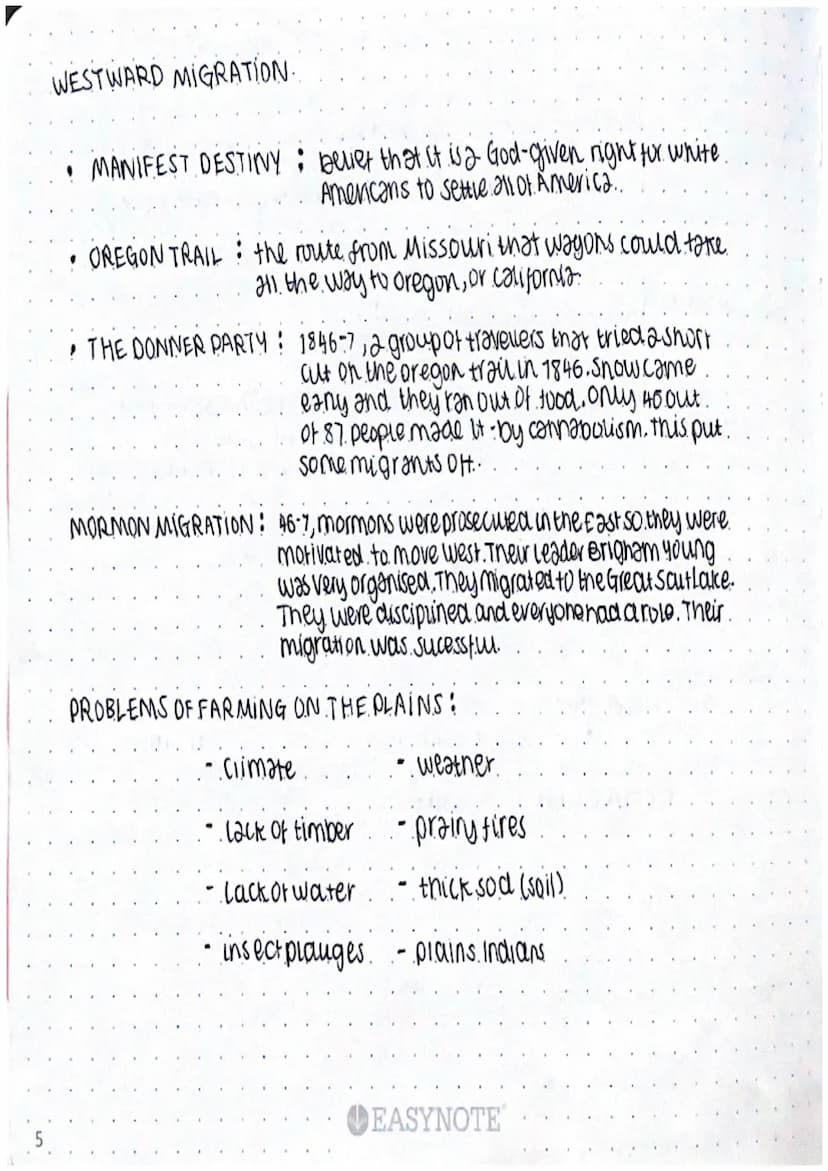 WESTWARD MIGRATION.
• MANIFEST DESTINY : belief that it is a God-given right for white
Americans to settle all of America.
• OREGON TRAIL : the route from Missouri that wagons could take
all the way to oregon, or california.
• THE DONNER PARTY : 1846-7, a group of travellers that tried a short
cut on the oregon trail in 1846. Snow came
early and they ran out of food. Only 46 out
of 87 people made it - by cannabolism. this put
some migrants off.
MORMON MIGRATION : 46-7, mormons were prosecuted in the East so they were
motivated to move west. Their leader Brigham young
was very organised. They migrated to the Great Salt Lake.
They were disciplined and everyone had a role. Their
migration was sucessful.
PROBLEMS OF FARMING ON THE PLAINS :
- climate - weather
- lack of timber - prairy fires
- lack of water - thick sod (soil)
- insect plauges - plains indians
EASYNOTE
5